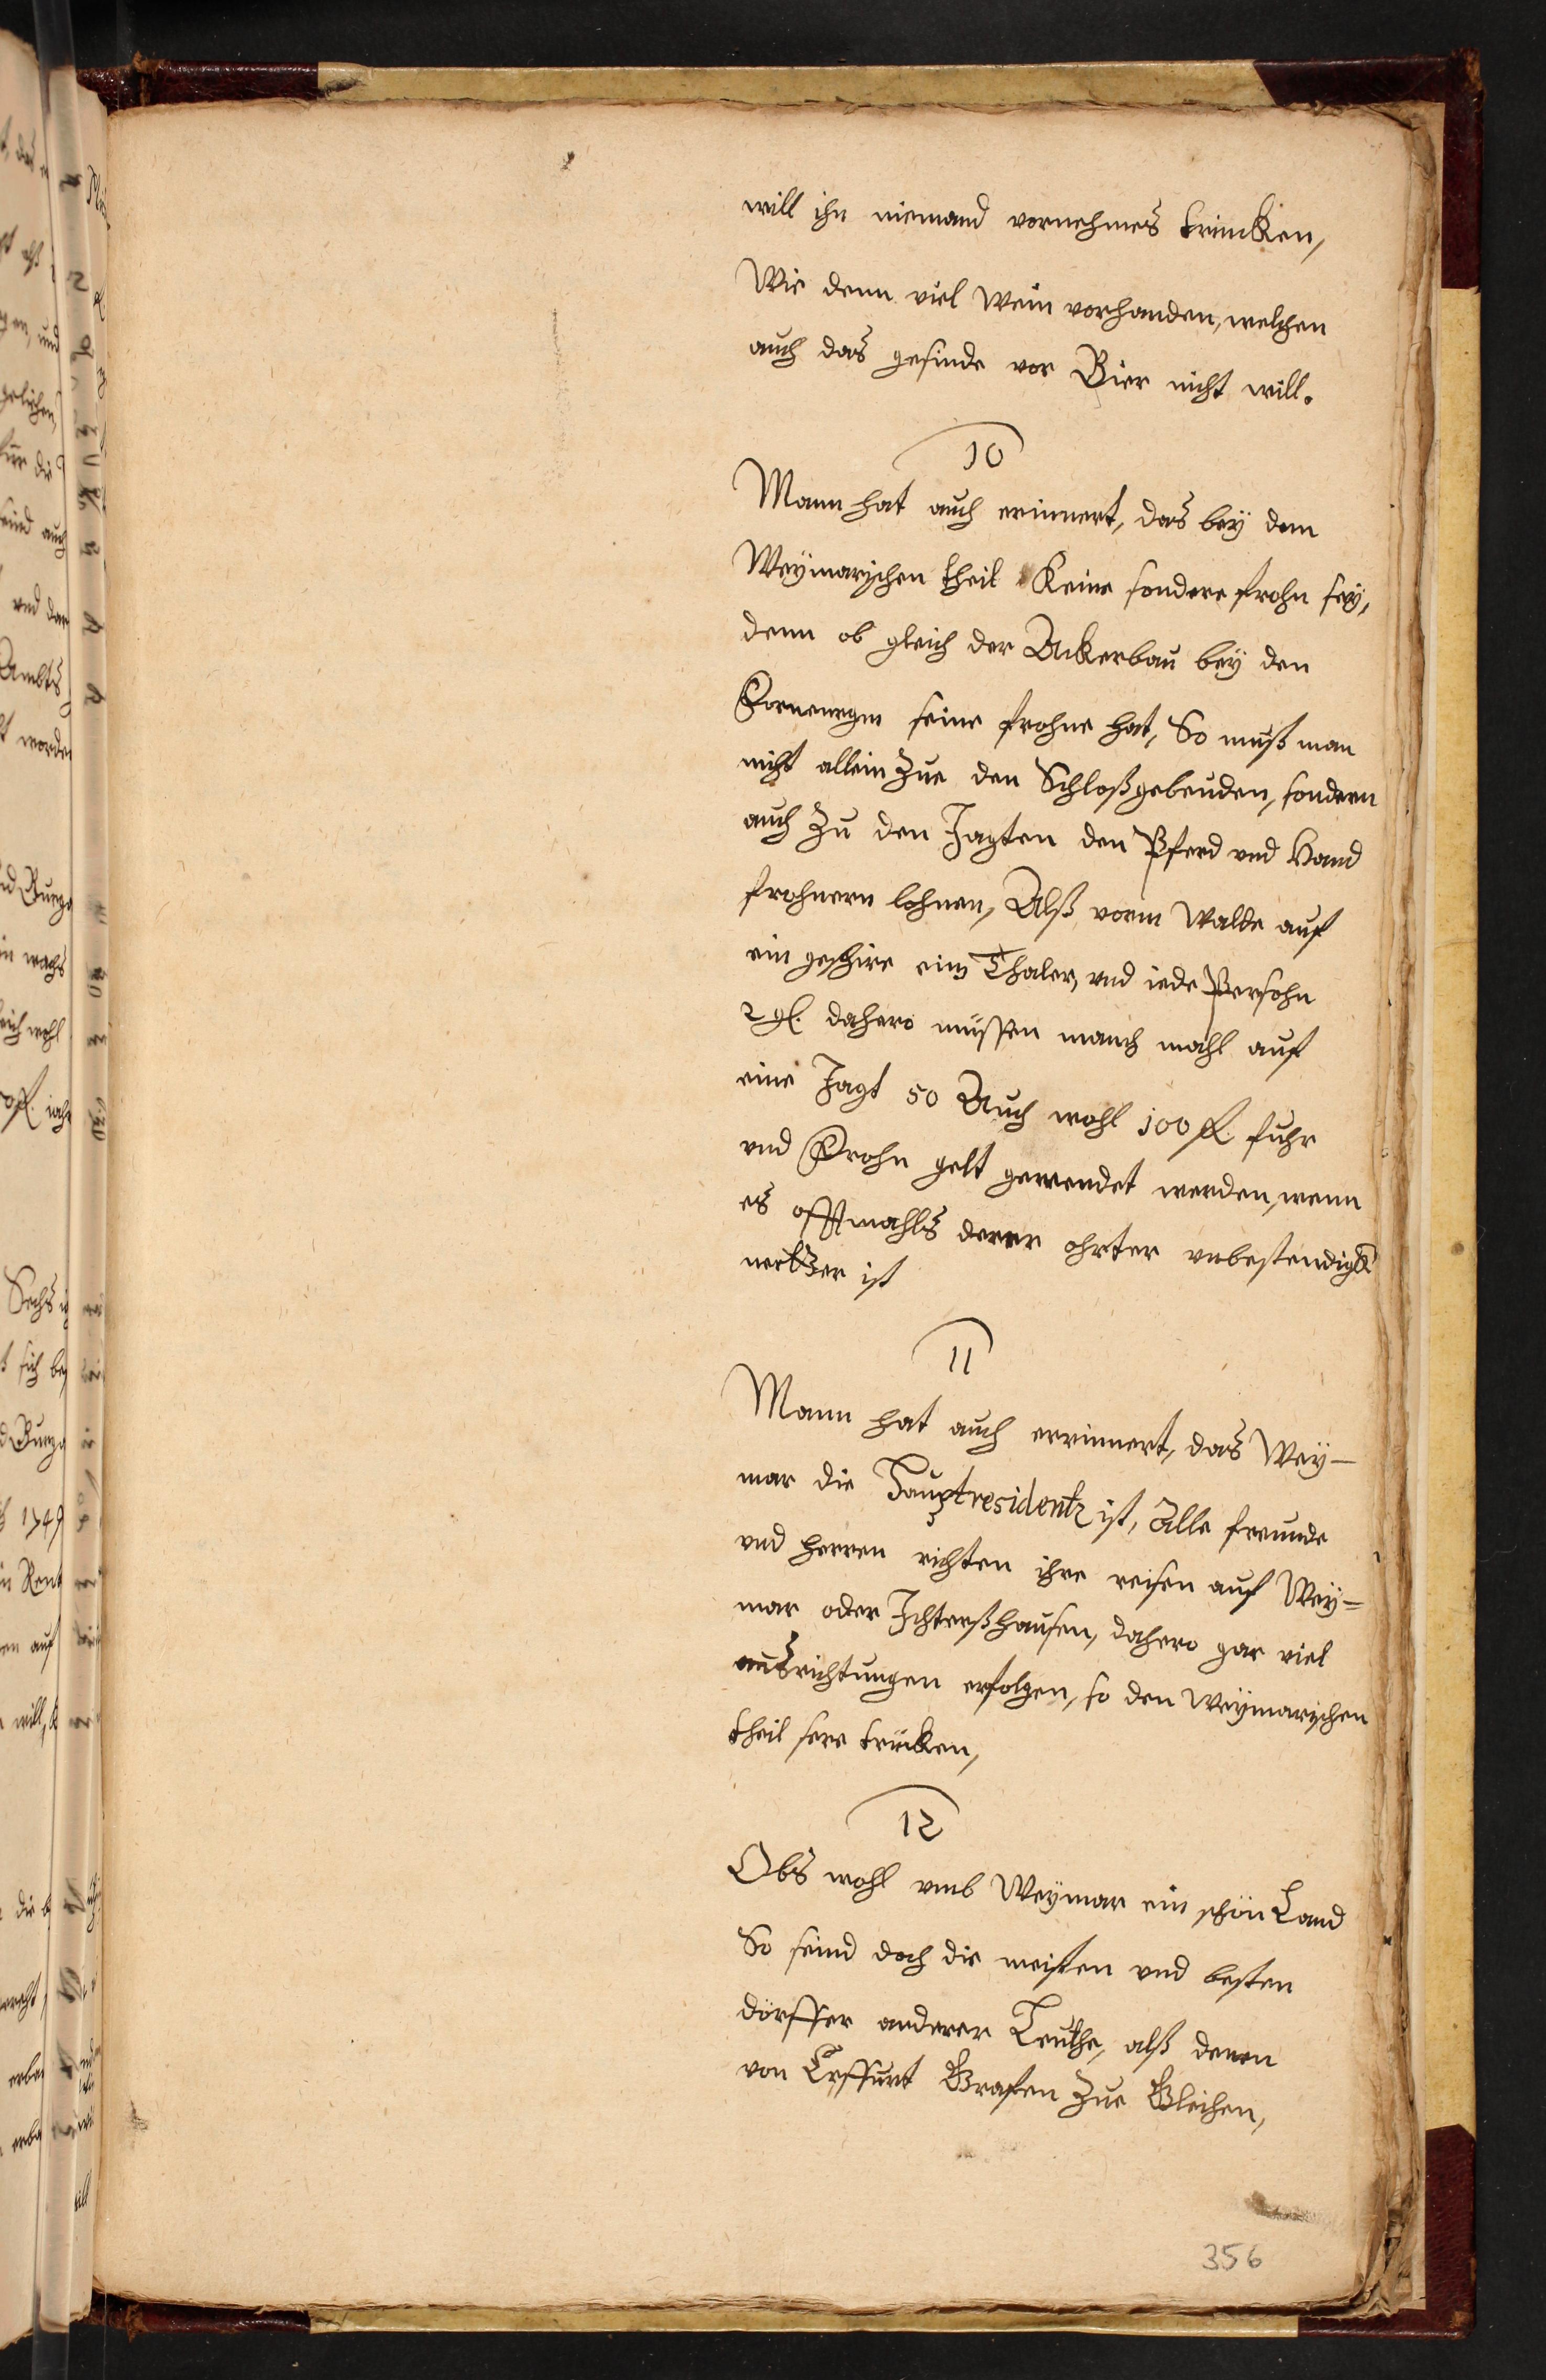 will ihn niemand vornehmes trincken,
Wie denn viel Wein vorhanden, welchen
auch das gesinde vor Bier nicht will.
10
Mann hat auch erinnert, das bey dem
Weymarischen theil Keine sondere frohn sey,
denn ob gleich der Ackerbau bey den
seine frohne hat, So muß man
nicht allein Zue den Schloßgebeuden, sondern
auch Zu den Jagten den Pferd vnd Hand
frohnern lohnen, Alß vorm Walde auf
ein geschirr ein Thaler, vnd iede Persohn
2 gl. dahero müssen manch mahl auf
eine Jagt 50 Auch wohl 100 fl. fuhr
vnd Frohn gelt gewendet werden, wenn
es offtmahls derer ohrter vnbestendigk
wetter ist
11
Mann hat auch errinnert, das Wey-
mar die Hauptresidentz ist, Alle freunde
vnd herren richten ihre reisen auf Wey=
mar oder Ichterßhausen, dahero gar viel
außrichtungen erfolgen, so den Weymarischen
theil sere trücken,
12
Obs wohl vmb Weymar ein schön Land
So seind doch die meisten vnd besten
dörffer anderer Leuthe, alß denen
von Erffurt Grafen Zue Gleichen,
356